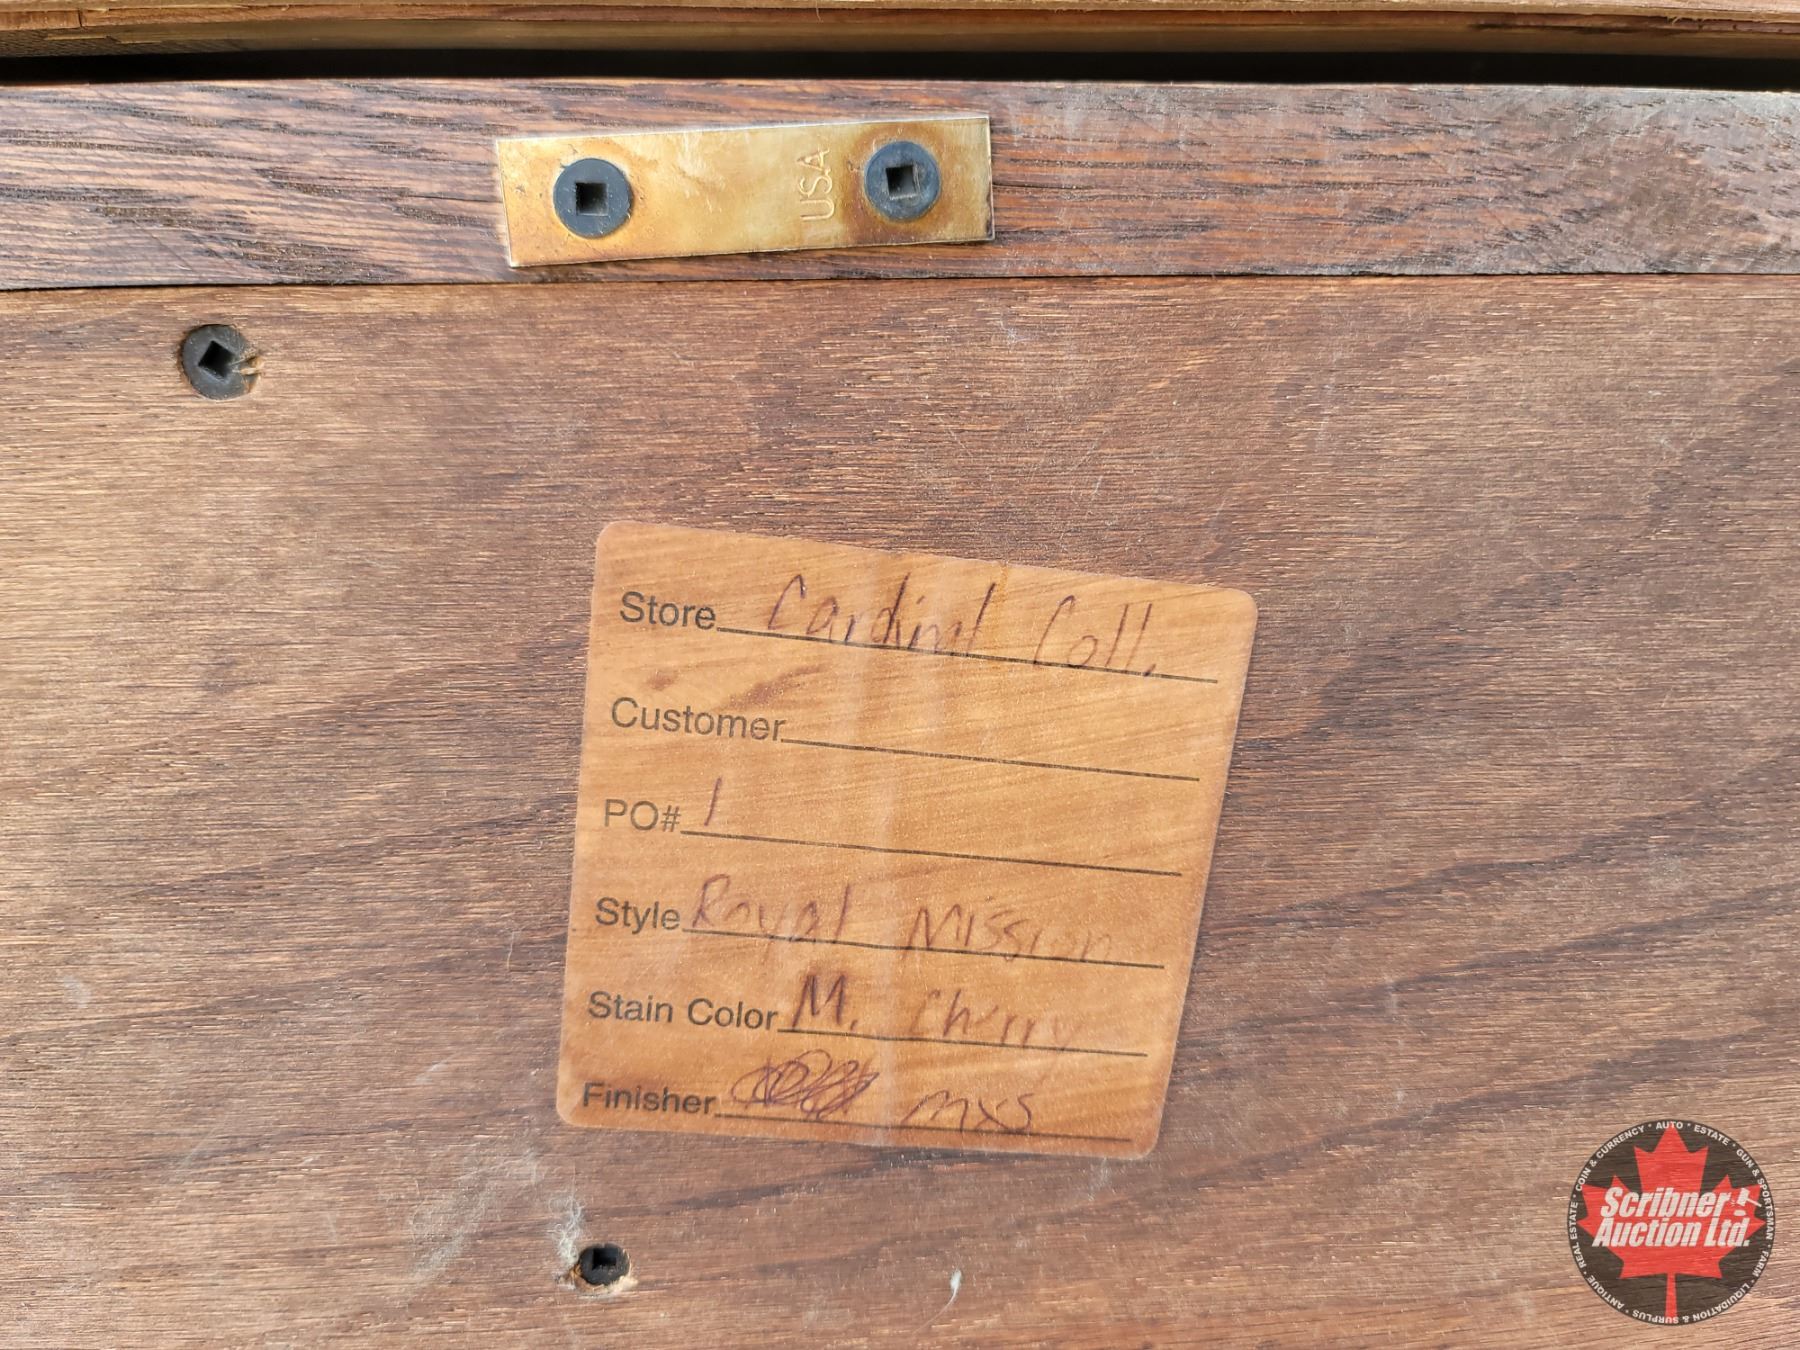 USA
Store Cardinal Coll.
Customer
PO# 1
Style Royal Mission
Stain Color M. Cherry
Finisher MXS
Scribner
Auction Ltd.
REAL ESTATE • COIN & CURRENCY • AUTO • ESTATE • GUN & SPORTSMAN • FARM • LIQUIDATION & SURPLUS • ANTIQUE